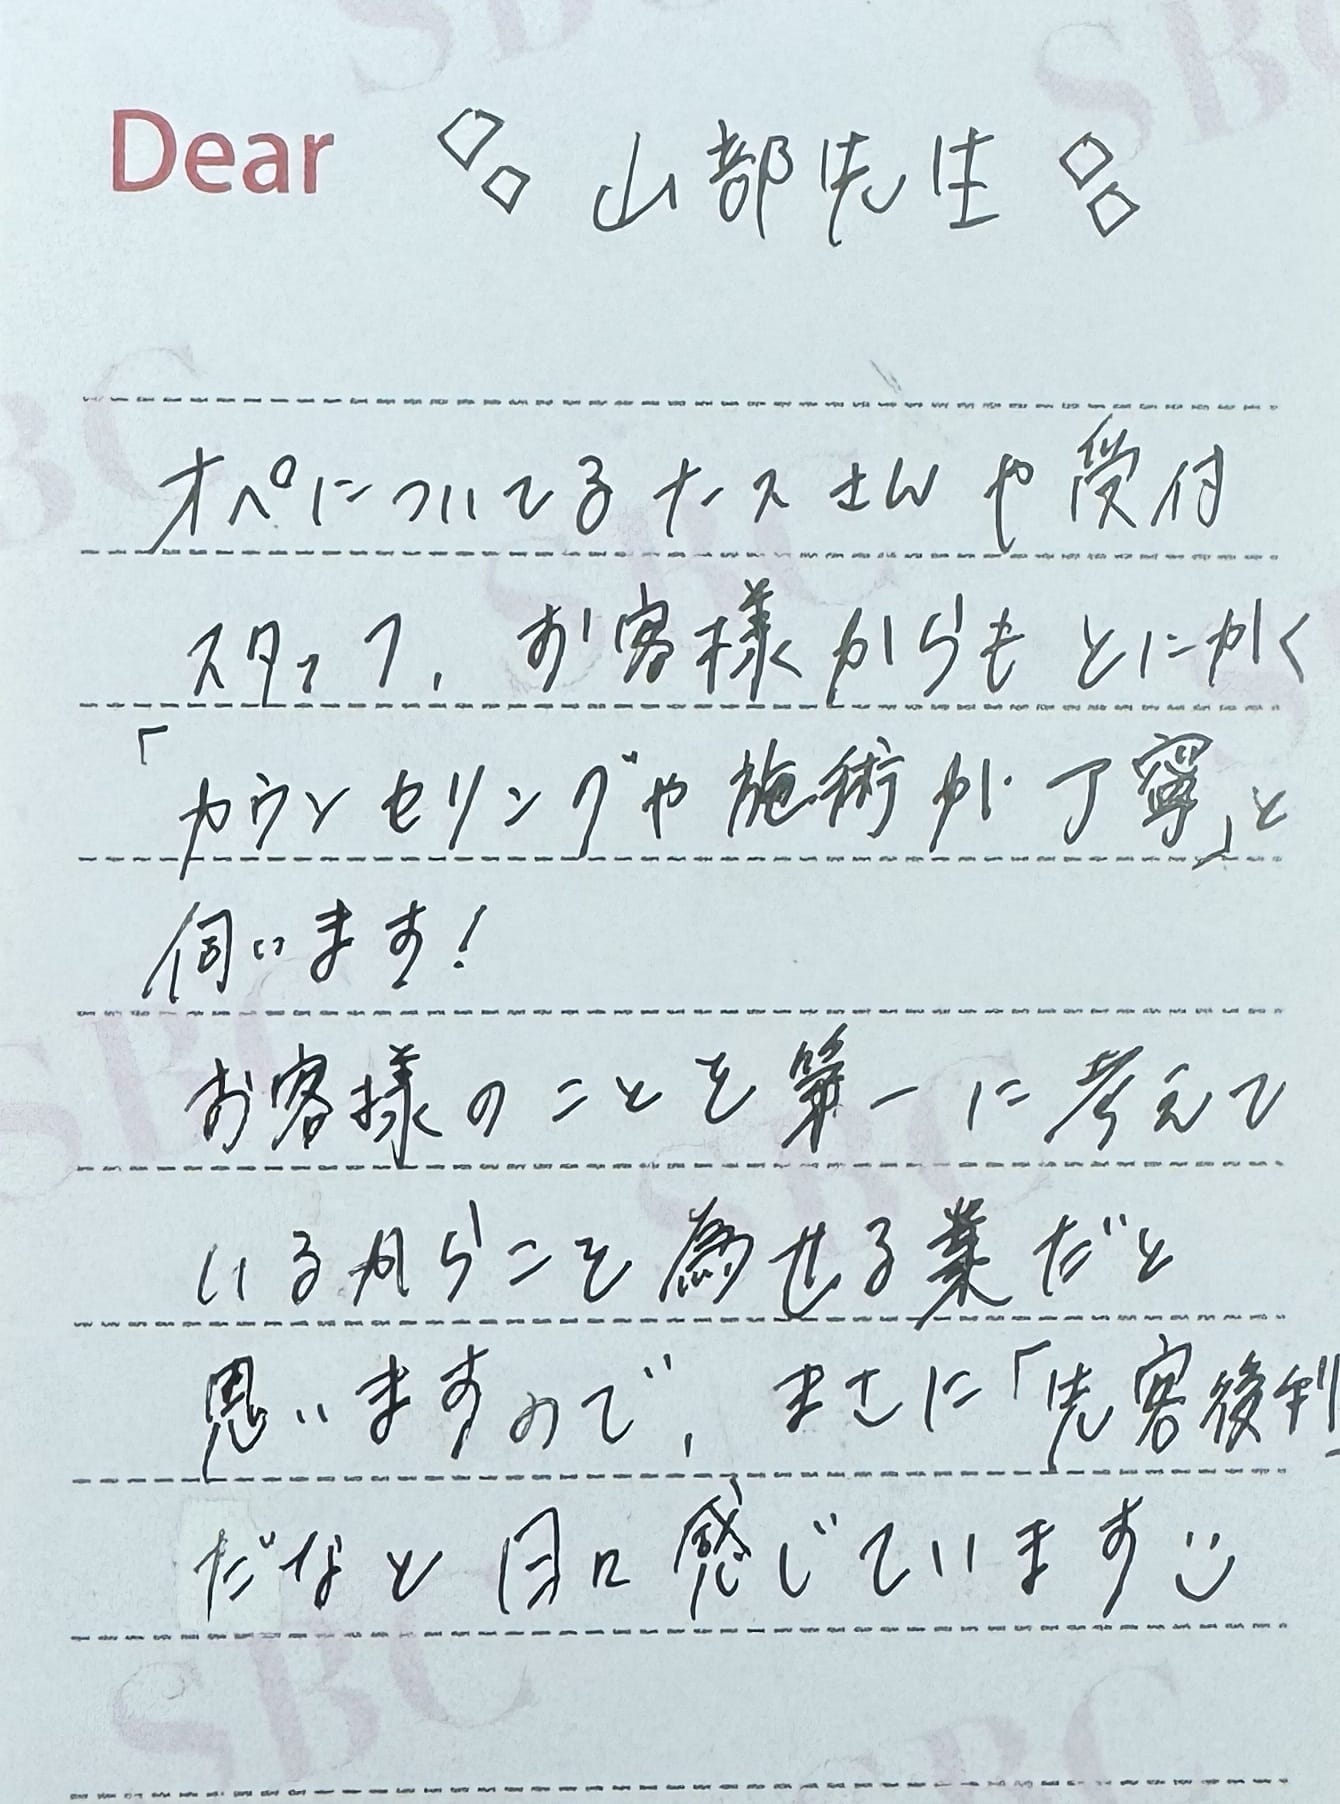 Dear 山部先生
オペについてるナースさんや受付
スタッフ、お客様からもとにかく
「カウンセリングや施術が丁寧」と
伺います!
お客様のことを第一に考えて
いるからこそ為せる業だと
思いますので、まさに「先客後利」
だなと日々感じています
SBC